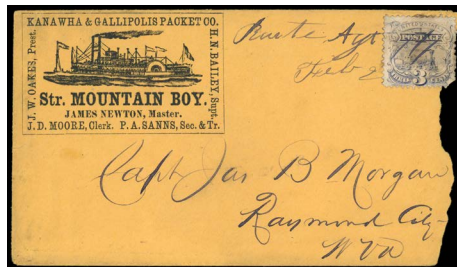 KANAWHA & GALLIPOLIS PACKET CO.
J. W. OAKES, Prest.
H. N. BAILEY, Supt.
Str. MOUNTAIN BOY.
JAMES NEWTON, Master.
J. D. MOORE, Clerk. P. A. SANNS, Sec. & Tr.
Route Agt
Feb 2
POSTAGE
3
Capt Jas B Morgan
Raymond City
W Va